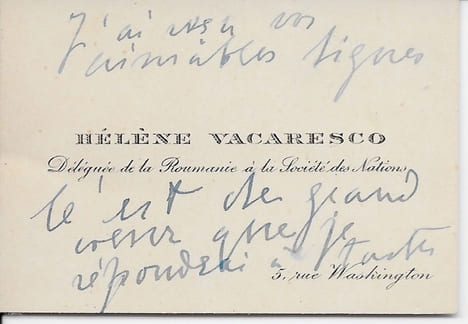 J'ai reçu vos
aimables lignes
HÉLÈNE VACARESCO
Déléguée de la Roumanie à la Société des Nations
c'est de grand
coeur que je
répondrai à
5, rue Washington